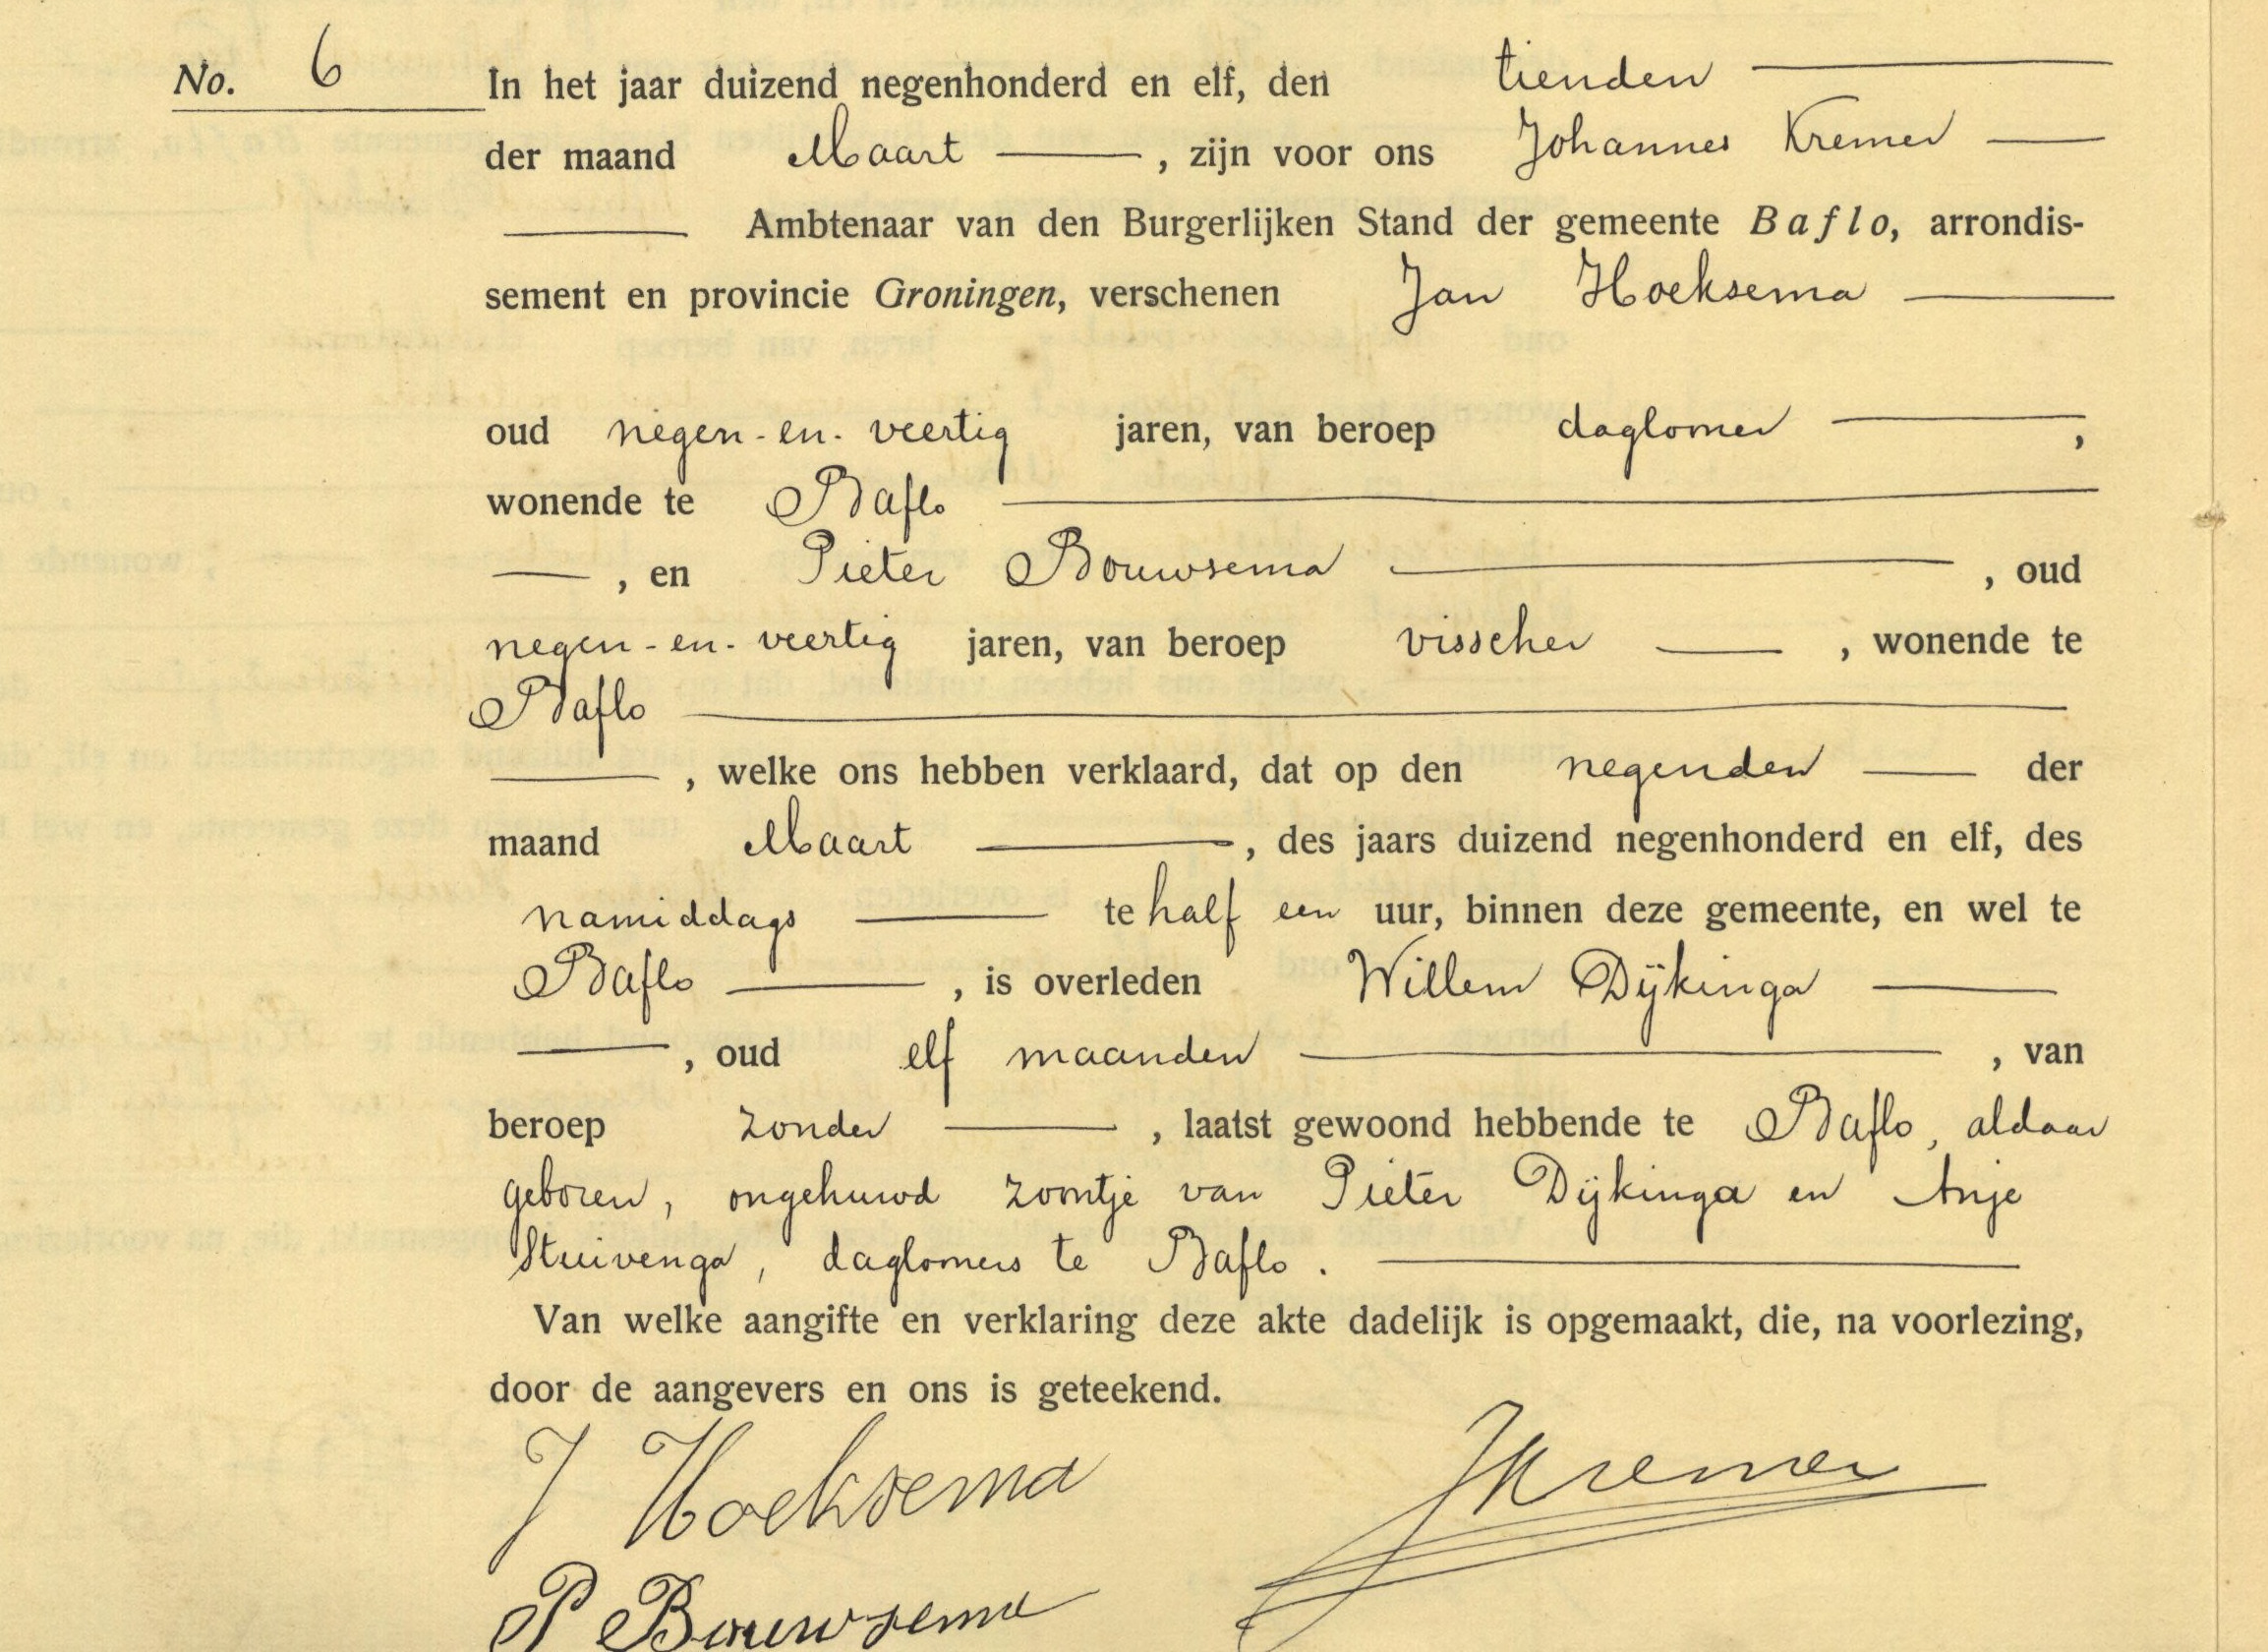 No. 6 In het jaar duizend negenhonderd en elf, den tienden
der maand Maart, zijn voor ons Johannes Kremer
Ambtenaar van den Burgerlijken Stand der gemeente Baflo, arrondis-
sement en provincie Groningen, verschenen Jan Hoeksema
oud negen-en-veertig jaren, van beroep dagloner,
wonende te Baflo
, en Pieter Bouwsema, oud
negen-en-veertig jaren, van beroep visscher, wonende te
Baflo
, welke ons hebben verklaard, dat op den negenden der
maand Maart, des jaars duizend negenhonderd en elf, des
namiddags te half een uur, binnen deze gemeente, en wel te
Baflo, is overleden Willem Dijkinga
, oud elf maanden, van
beroep zonder, laatst gewoond hebbende te Baflo, aldaar
geboren, ongehuwd zoontje van Pieter Dijkinga en Anje
Stuivenga, dagloners te Baflo.
Van welke aangifte en verklaring deze akte dadelijk is opgemaakt, die, na voorlezing,
door de aangevers en ons is geteekend.
J Hoeksema JKremer
P Bouwsema